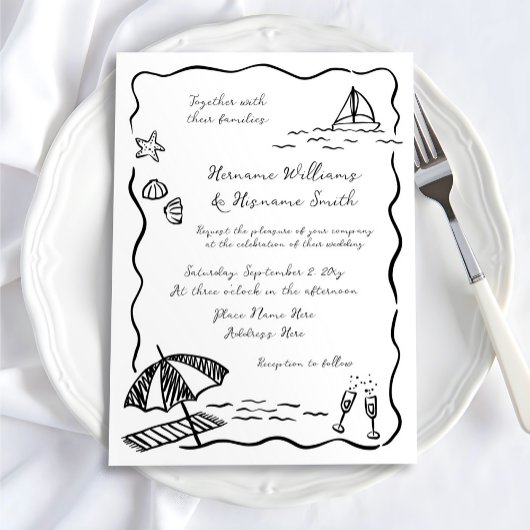 Together with
their families
Hername Williams
& Hisname Smith
Request the pleasure of your company
at the celebration of their wedding
Saturday, September 2, 20xy
At three o'clock in the afternoon
Place Name Here
Address Here
Reception to follow